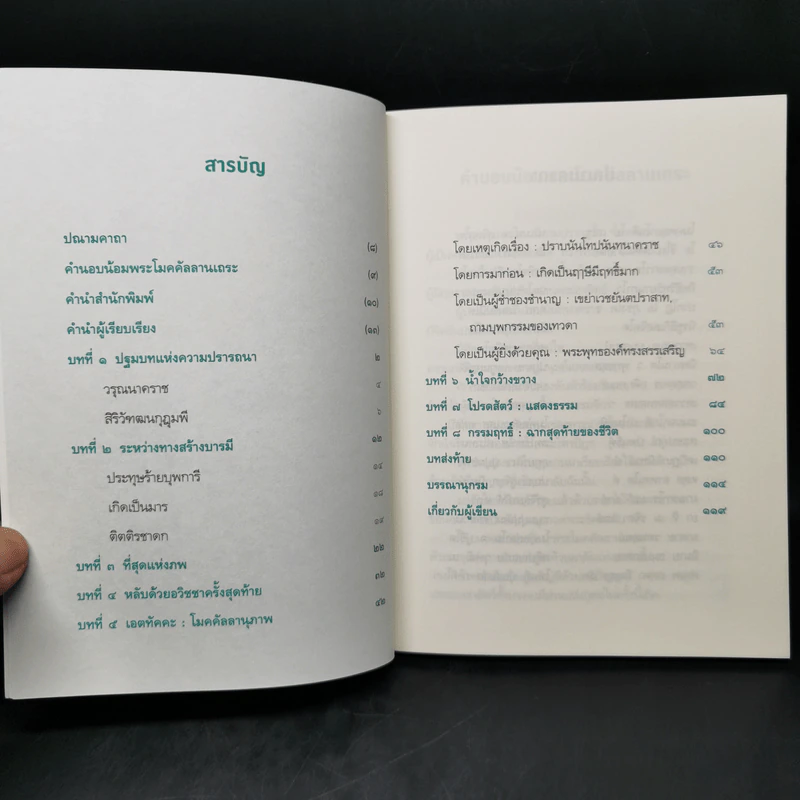 สารบัญ
ปณามคาถา (๘)
คำนอบน้อมพระโมคคัลลานเถระ (๙)
คำนำสำนักพิมพ์ (๑๐)
คำนำผู้เรียบเรียง (๑๓)
บทที่ ๑ ปฐมบทแห่งความปรารถนา ๒
วรุณนาคราช ๔
สิริวัฑฒนกุฎุมพี ๖
บทที่ ๒ ระหว่างทางสร้างบารมี ๑๒
ประทุษร้ายบุพการี ๑๔
เกิดเป็นมาร ๑๘
ติตติรชาดก ๑๙
บทที่ ๓ ที่สุดแห่งภพ ๒๒
บทที่ ๔ หลับด้วยอวิชชาครั้งสุดท้าย ๓๒
บทที่ ๕ เอตทัคคะ : โมคคัลลานุภาพ ๔๒
โดยเหตุเกิดเรื่อง : ปราบนันโทปนันทนาคราช ๔๖
โดยการมาก่อน : เกิดเป็นฤๅษีมีฤทธิ์มาก ๕๓
โดยเป็นผู้ช่ำชองชำนาญ : เขย่าเวชยันตปราสาท,
ถามบุพกรรมของเทวดา ๕๓
โดยเป็นผู้ยิ่งด้วยคุณ : พระพุทธองค์ทรงสรรเสริญ ๖๔
บทที่ ๖ น้ำใจกว้างขวาง ๗๒
บทที่ ๗ โปรดสัตว์ : แสดงธรรม ๘๔
บทที่ ๘ กรรมฤทธิ์ : ฉากสุดท้ายของชีวิต ๑๐๐
บทส่งท้าย ๑๑๐
บรรณานุกรม ๑๑๔
เกี่ยวกับผู้เขียน ๑๑๙